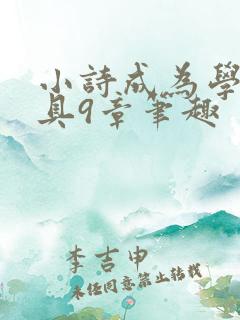 小詩成為學
具9章筆趣
李吉申
未经同意禁止转载